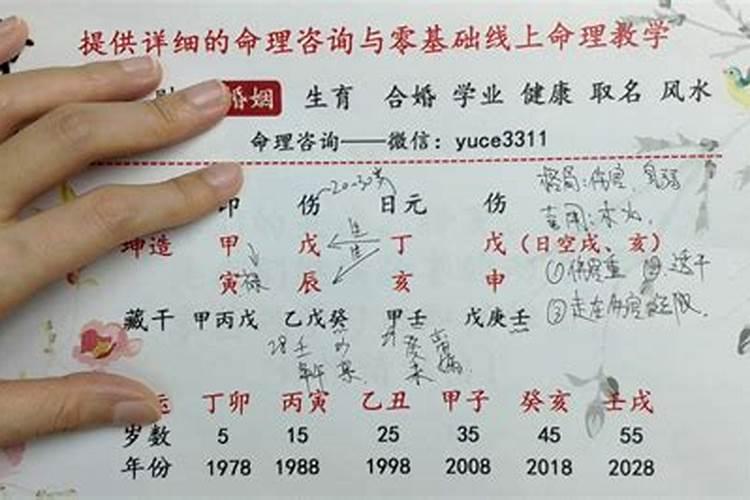 提供详细的命理咨询与零基础线上命理教学
婚姻 生育 合婚 学业 健康 取名 风水
命理咨询——微信：yuce3311
~20-30岁
印 伤 日元 伤
格局：伤官，身弱
喜用：木火，
坤造 甲 戊 生 丁 戊（日空戌、亥）
寅 禄 辰 生 亥 申
①伤官重 透干
藏干 甲丙戊 乙戊癸 甲壬 戊庚壬
③走在伤官
运 丁卯 丙寅 乙丑 甲子 癸亥 壬戌
岁数 5 15 25 35 45 55
年份 1978 1988 1998 2008 2018 2028